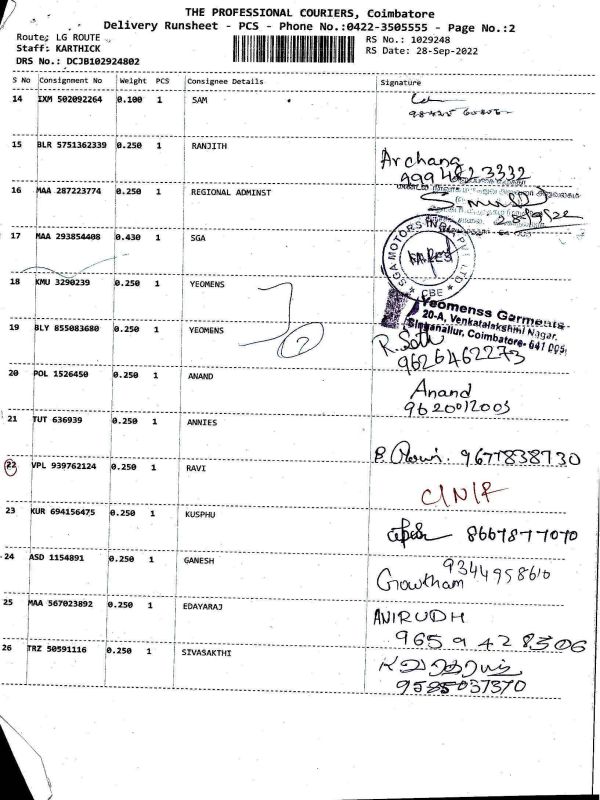 THE PROFESSIONAL COURIERS, Coimbatore
Delivery Runsheet - PCS - Phone No.:0422-3505555 - Page No.:2
Route: LG ROUTE RS No.: 1029248
Staff: KARTHICK RS Date: 28-Sep-2022
DRS No.: DCJB102924802
S No Consignment No Weight PCS Consignee Details Signature
14 IXM 502092264 0.100 1 SAM
15 BLR 5751362339 0.250 1 RANJITH Archana
9994823332
16 MAA 287223774 0.250 1 REGIONAL ADMINST
17 MAA 293854408 0.430 1 SGA SGA MOTORS CBE
18 KMU 3290239 0.250 1 YEOMENS Yeomenss Garments
20-A, Venkatalakshmi Nagar,
Singanallur, Coimbatore- 641 005
19 BLY 855083680 0.250 1 YEOMENS
9626462273
20 POL 1526450 0.250 1 ANAND Anand
9620012003
21 TUT 636939 0.250 1 ANNIES 9677838730
22 VPL 939762124 0.250 1 RAVI C/N/R
23 KUR 694156475 0.250 1 KUSPHU 8667877070
24 ASD 1154891 0.250 1 GANESH Gowtham 9344958610
25 MAA 567023892 0.250 1 EDAYARAJ ANIRUDH
9659428306
26 TRZ 50591116 0.250 1 SIVASAKTHI
9585037370